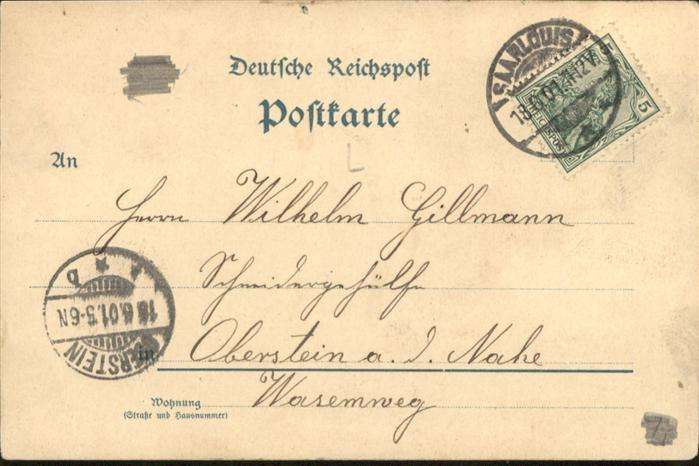 SAARLOUIS
18.6.01. 11-12V.
5
Deutsche Reichspost
Postkarte
An
Herrn Wilhelm Gillmann
Schneidergehülfe
in Oberstein a. d. Nahe
Wasemweg
Wohnung
(Straße und Hausnummer)
OBERSTEIN
18.6.01. 5-6N
* b
7